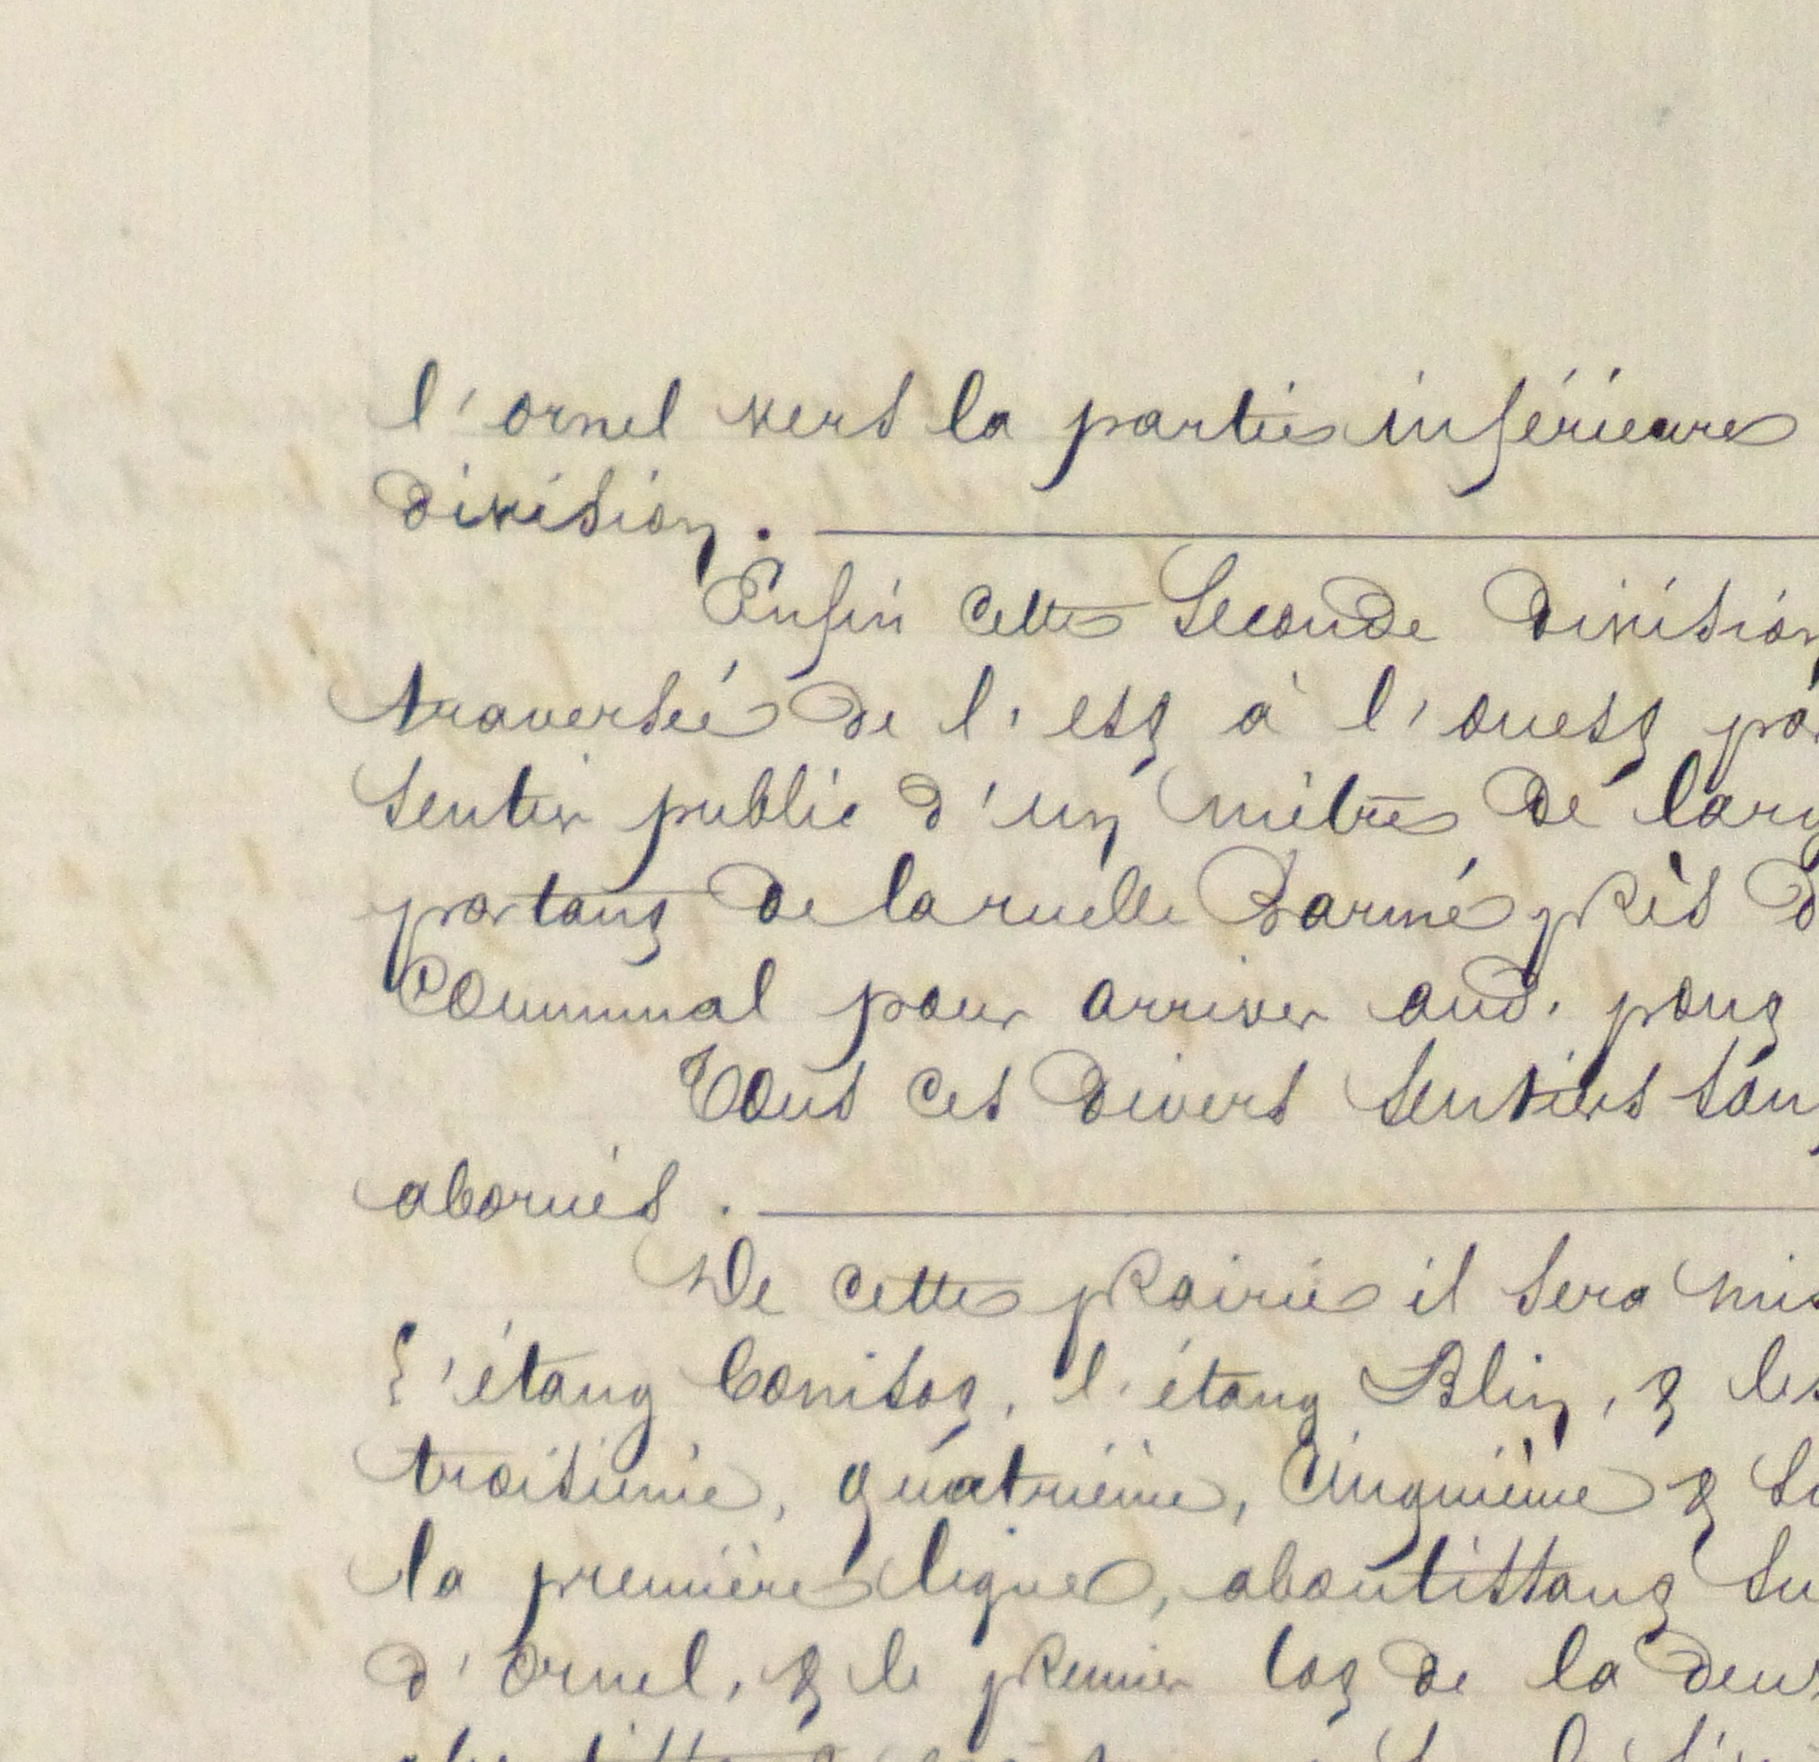 l'ornel vers la partie inférieure
division.
Enfin cette Seconde division
traversée de l'est à l'ouest par
sentier public d'un mètre de larg
partant de la ruelle Barmé près d
Communal pour arriver aud. pont
Tous ces divers sentiers sont
abornés.
De cette prairie il sera mis
l'étang Conisot, l'étang Blin, & les
troisième, quatrième, Cinquième & Si
la première ligne, aboutissant su
d'Ornel, & le premier lot de la deux